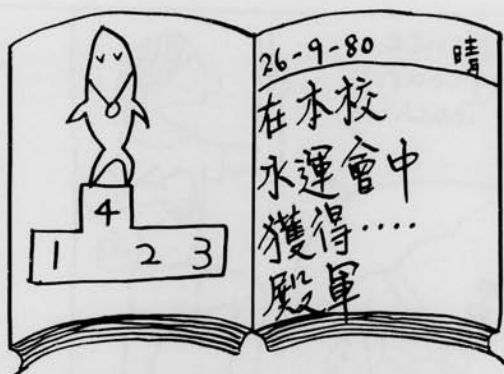 4
1 2 3
26-9-80 晴
在本校
水運會中
獲得....
殿軍